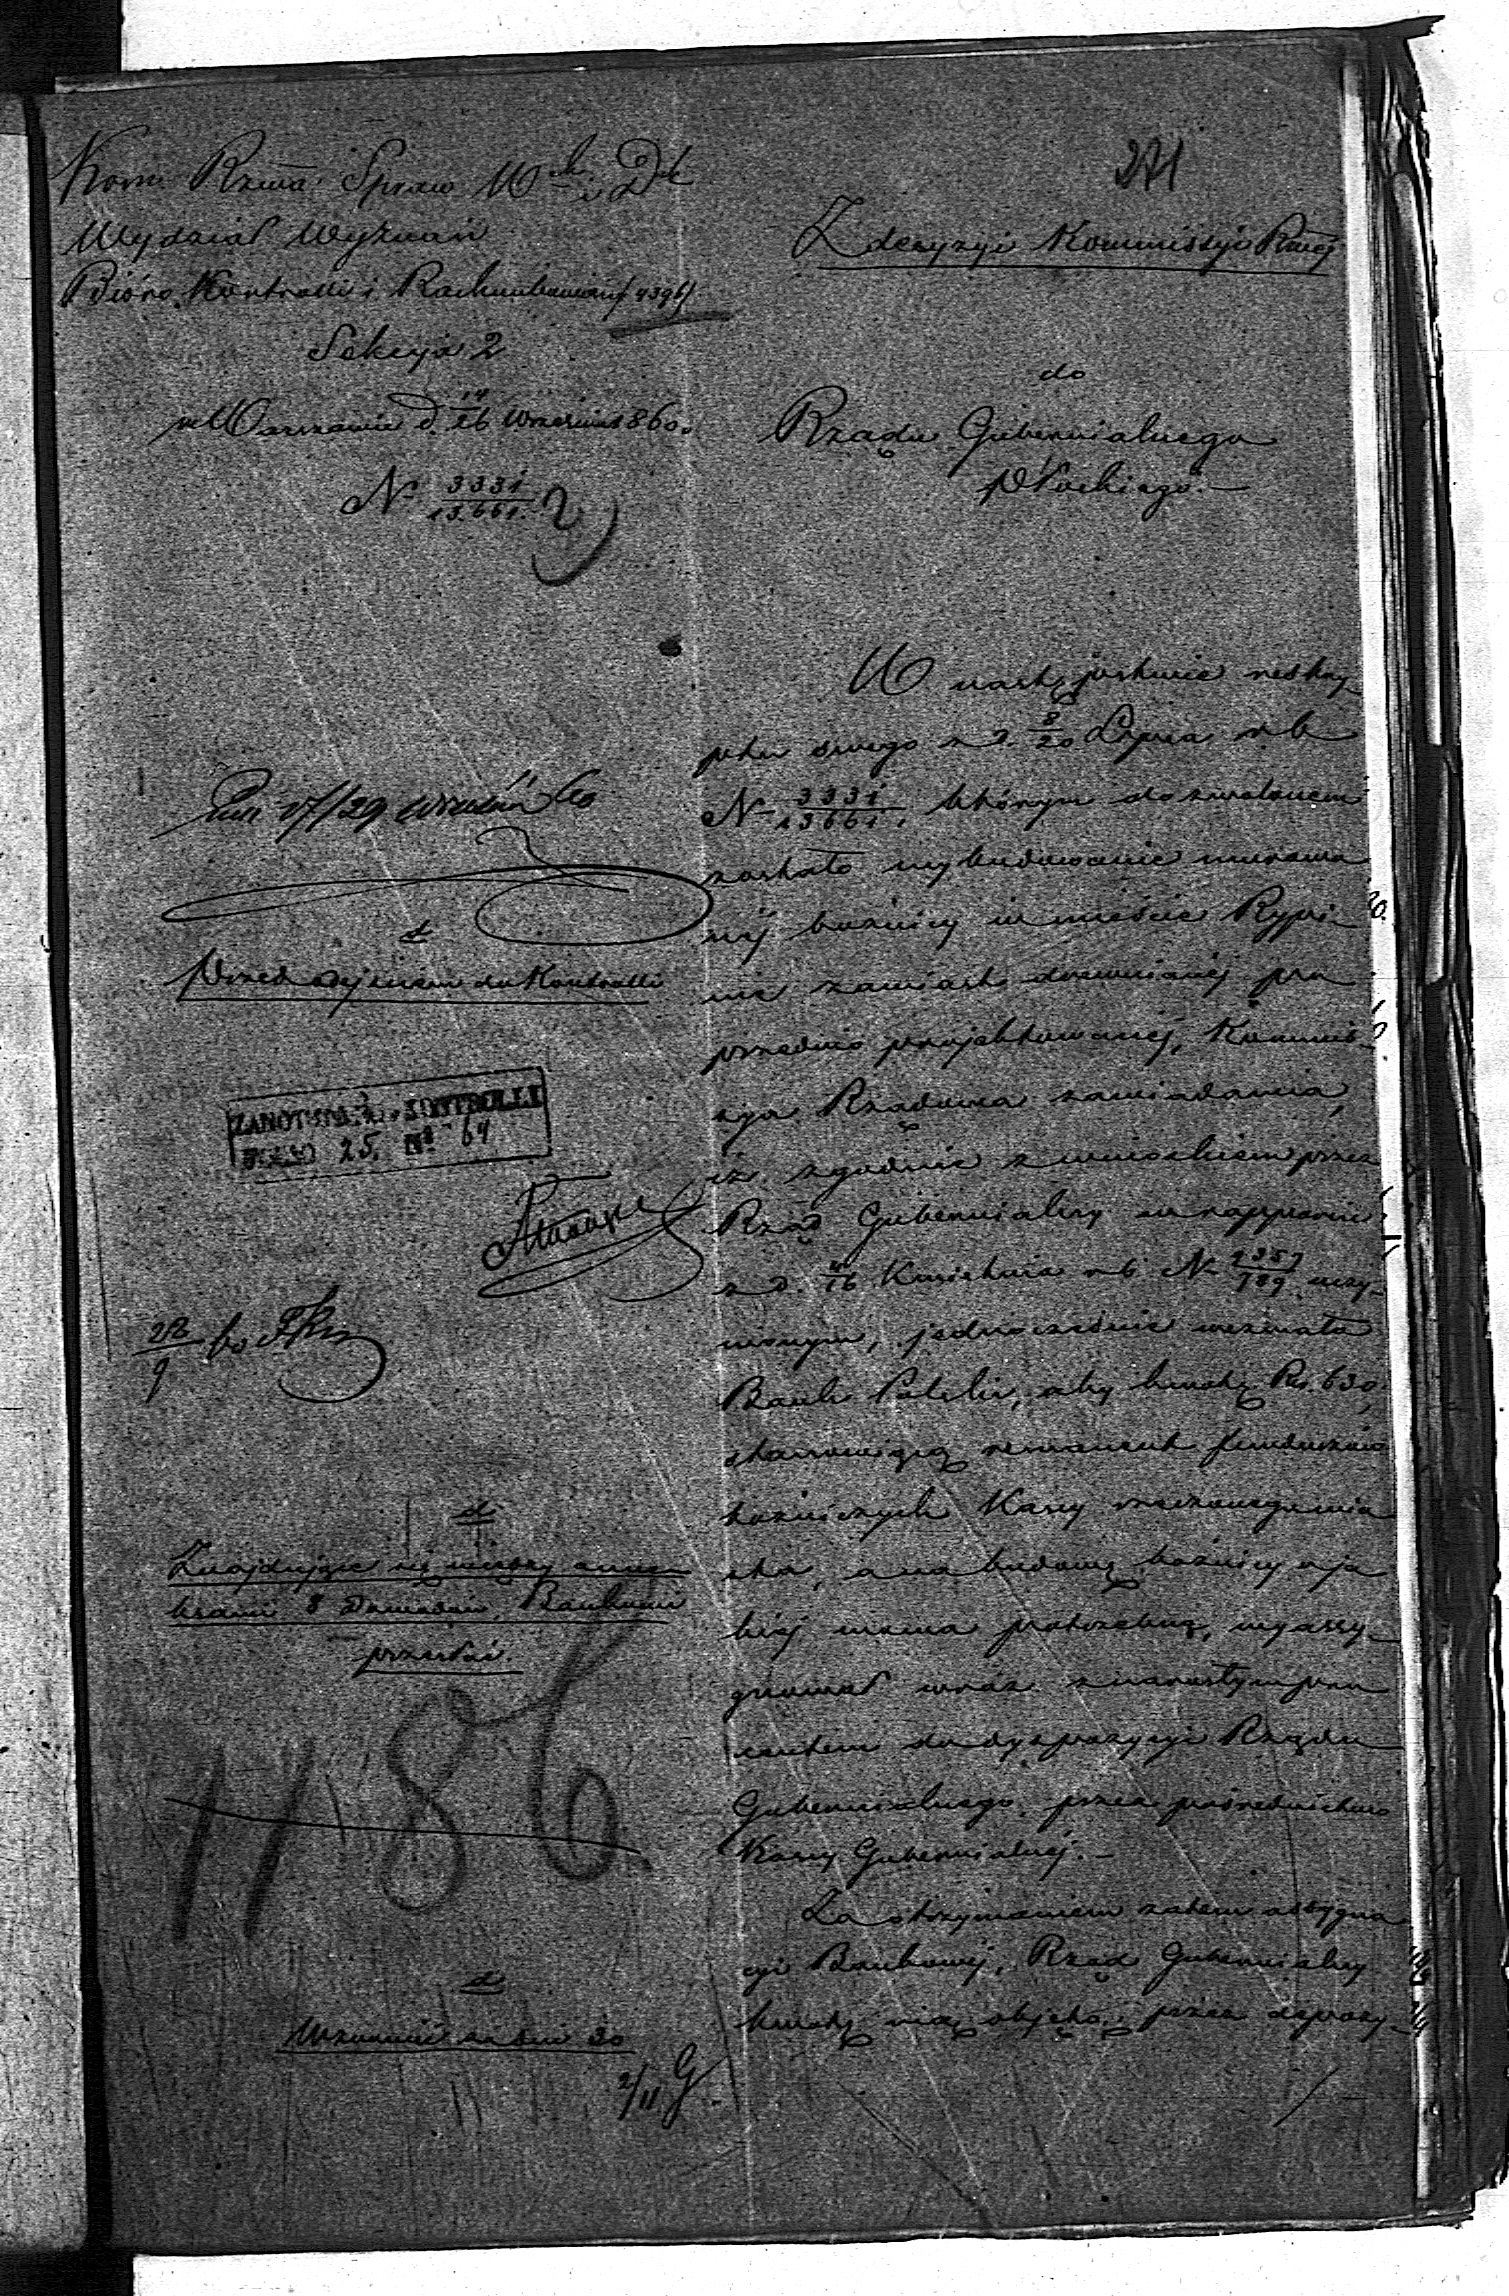 271
Kom. Rzwa. Spraw Wch. i Dch
Wydział Wyznań
Bióro Kontrolli i Rachunkowości
Sekcyja 2
w Warszawie d. 14/26 Września 1860.
N 3331/13661. 2
Z decyzyi Kommissyi Rzącej
do
Rządu Gubernialnego
Płockiego. —
W następstwie reskry-
ptu swego z d. 8/20 Lipca r.b.
N 3331/13661, którym dozwolonem
zostało wybudowanie murowa
nej bużnicy w mieście Rypi-
nie zamiast drewnianej po
przednio projektowanej, Kommis-
sya Rządowa zawiadamia,
iż zgodnie z wnioskiem przez
Rząd Gubernialny w rapporcie
z d. 4/16 Kwietnia r.b. N uczy-
nionym, jednocześnie wezwała
Bank Polski, aby kwotę Rs. 630,
stanowiącą remanent funduszów
bożniczych Kassy rzeczonego mia
sta, a na budowę bożnicy o ja
kiej mowa potrzebną, wyassy-
gnował wraz z narosłym pro
centem do dyspozycyi Rządu
Gubernialnego, przez pośrednictwo
Kassy Gubernialnej. —
Za otrzymaniem zatem assygna
cyi Bankowej, Rząd Gubernialny
kwotę nią objętą, przez dyspozy-
17/29 Wrześn 60
Przed odejściem do Kontrolli
ZANOTOWANO w KONTROLLI
FOLIO 25. No 64
28/9
Znajdujące się między anne-
ksami 8 Dowodów Bankowi
przesłać.
1186
Wznowić za dni 30
2/11 G